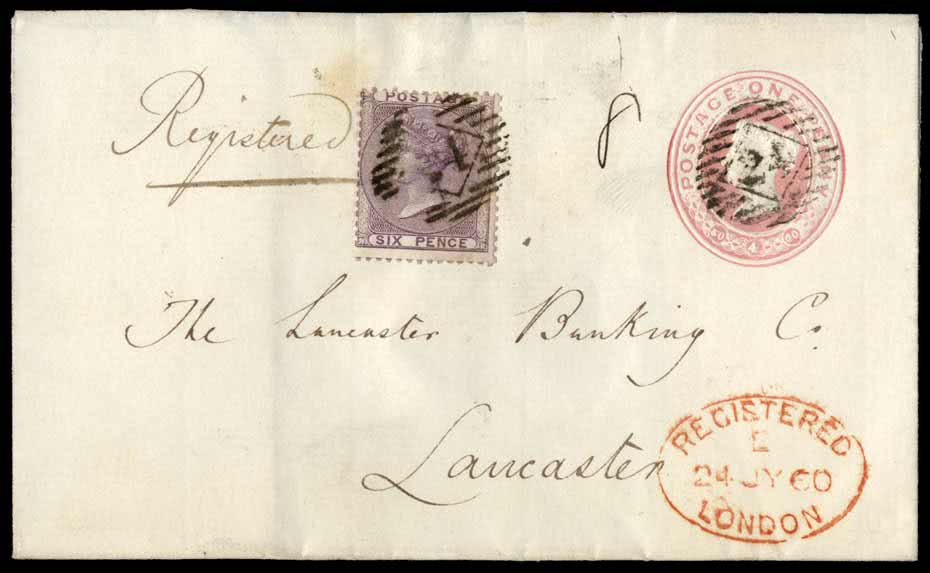 Registered
POSTAGE
SIX PENCE
8
POSTAGE ONE PENNY
2
The Lancaster Banking Co.
Lancaster
REGISTERED
E
24 JY 60
LONDON